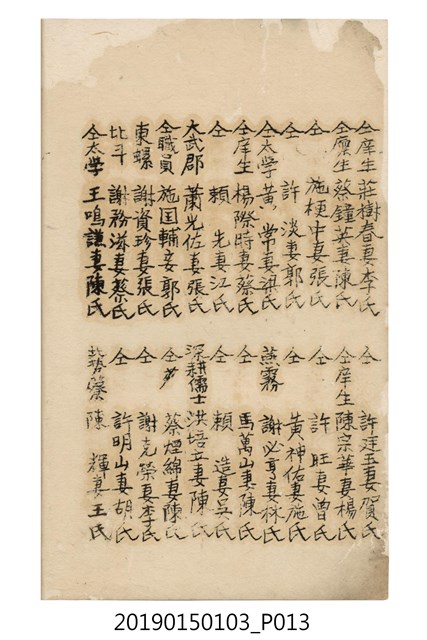 仝庠生莊樹春妻李氏
仝廩生蔡鐘英妻陳氏
仝施梗中妻張氏
仝許淡妻郭氏
仝太学黃常妻梁氏
仝庠生楊際時妻蔡氏
仝賴先妻江氏
大武郡蕭光佐妻張氏
仝職員施国輔妾郭氏
東螺謝資珍妻張氏
北斗謝務滋妻蔡氏
仝太学王鳴謙妻陳氏
仝許廷玉妻賀氏
仝庠生陳宗華妻楊氏
仝許旺妻曾氏
仝黃神佑妻施氏
燕霧謝必亨妻林氏
仝馬萬山妻陳氏
仝賴造妻吳氏
深耕儒士洪培立妻陳氏
仝蔡煙綿妻陳氏
仝謝克榮妻李氏
仝許明山妻胡氏
陳輝妻王氏
20190150103_P013